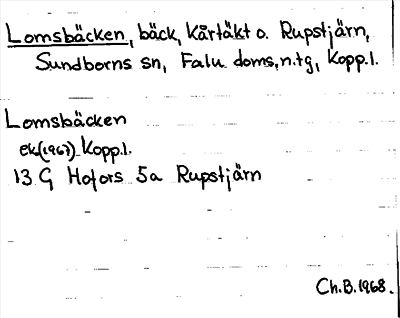 Lomsbäcken, bäck, Kårtäkt o. Rupstjärn,
Sundborns sn, Falu doms.n.tg, Kopp.l.
Lomsbäcken
ek(1967) Kopp.l.
13 G Hofors 5a Rupstjärn
Ch.B.1968.